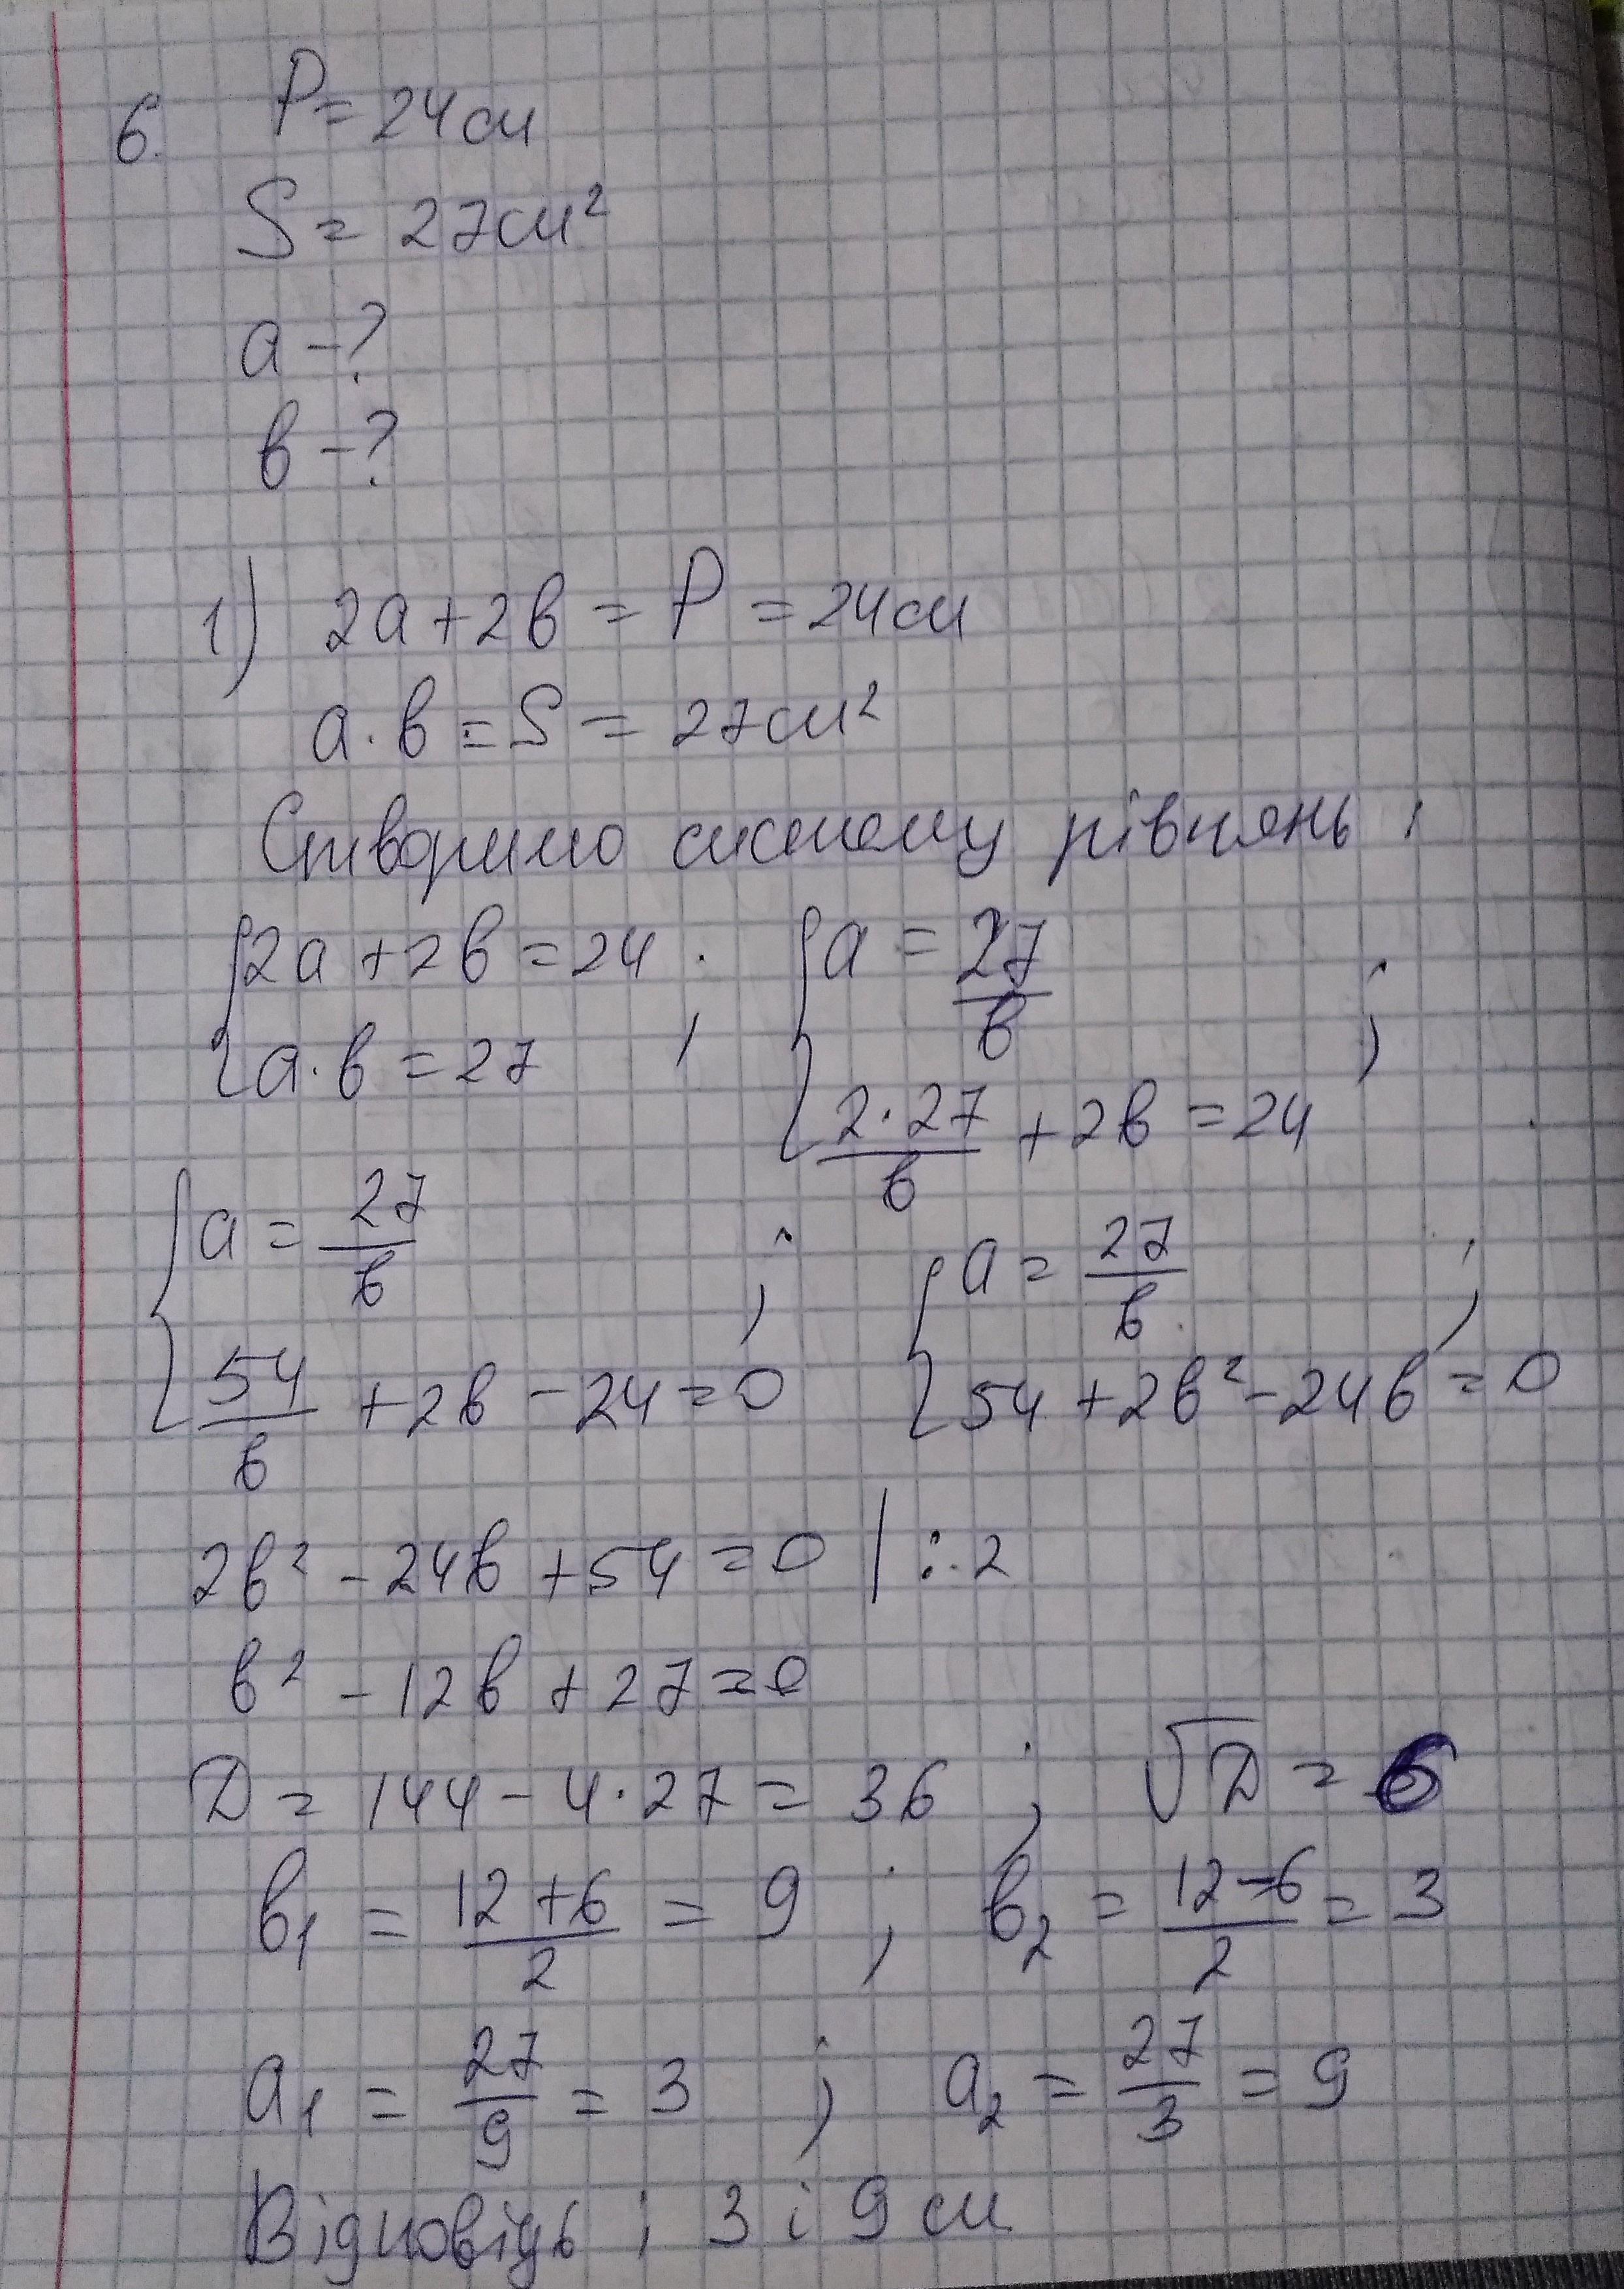 6. P = 24 см
S = 27 см²
a - ?
в - ?
1) 2a + 2в = P = 24 см
a · в = S = 27 см²
Створимо систему рівнянь:
{ 2a + 2в = 24 ; { a = 27/в ;
{ a · в = 27 { 2·27/в + 2в = 24
{ a = 27/в ; { a = 27/в ;
{ 54/в + 2в - 24 = 0 { 54 + 2в² - 24в = 0
2в² - 24в + 54 = 0 | : 2
в² - 12в + 27 = 0
D = 144 - 4·27 = 36 ; √D = 6
в₁ = (12+6)/2 = 9 ; в₂ = (12-6)/2 = 3
a₁ = 27/9 = 3 ; a₂ = 27/3 = 9
Відповідь: 3 і 9 см